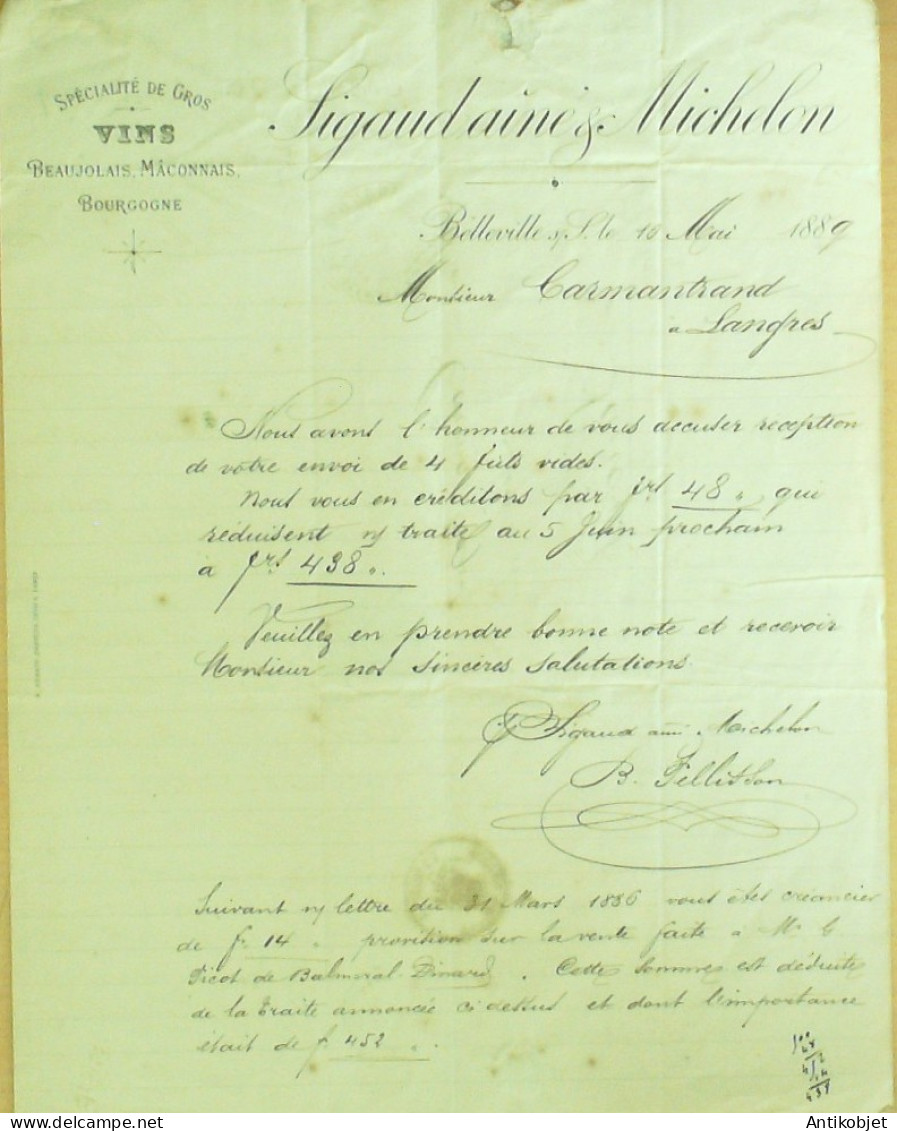 SPÉCIALITÉ DE GROS
VINS
BEAUJOLAIS, MÂCONNAIS,
BOURGOGNE
Sigaud ainé & Michelon
Belleville s/S. le 16 Mai 1889
Monsieur Carmantrand
a Langres
Nous avons l'honneur de vous accuser reception
de votre envoi de 4 fûts vides.
Nous vous en créditons par frs 48 " que
réduisent n/ traite au 5 Juin prochain
a frs 438 ".
Veuillez en prendre bonne note et recevoir
Monsieur nos sincères salutations
Sigaud ainé Michelon
B. Pellisson
Suivant n/ lettre du 31 Mars 1886 vous êtes créancier
de f. 14 " provision sur la vente faite a Mr G
Picot de Balmoral Dinard. Cette somme est déduite
de la traite annoncée ci dessus et dont l'importance
était de f. 452 ".
Antikobjet